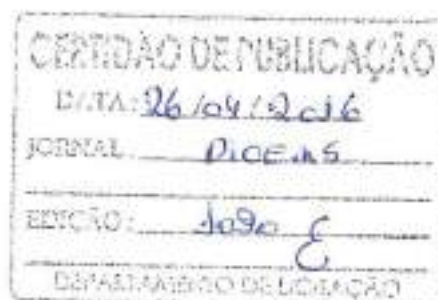 CERTIDÃO DE PUBLICAÇÃO
DATA: 26/04/2016
JORNAL
EDIÇÃO: 1090
DEPARTAMENTO DE LICITAÇÃO